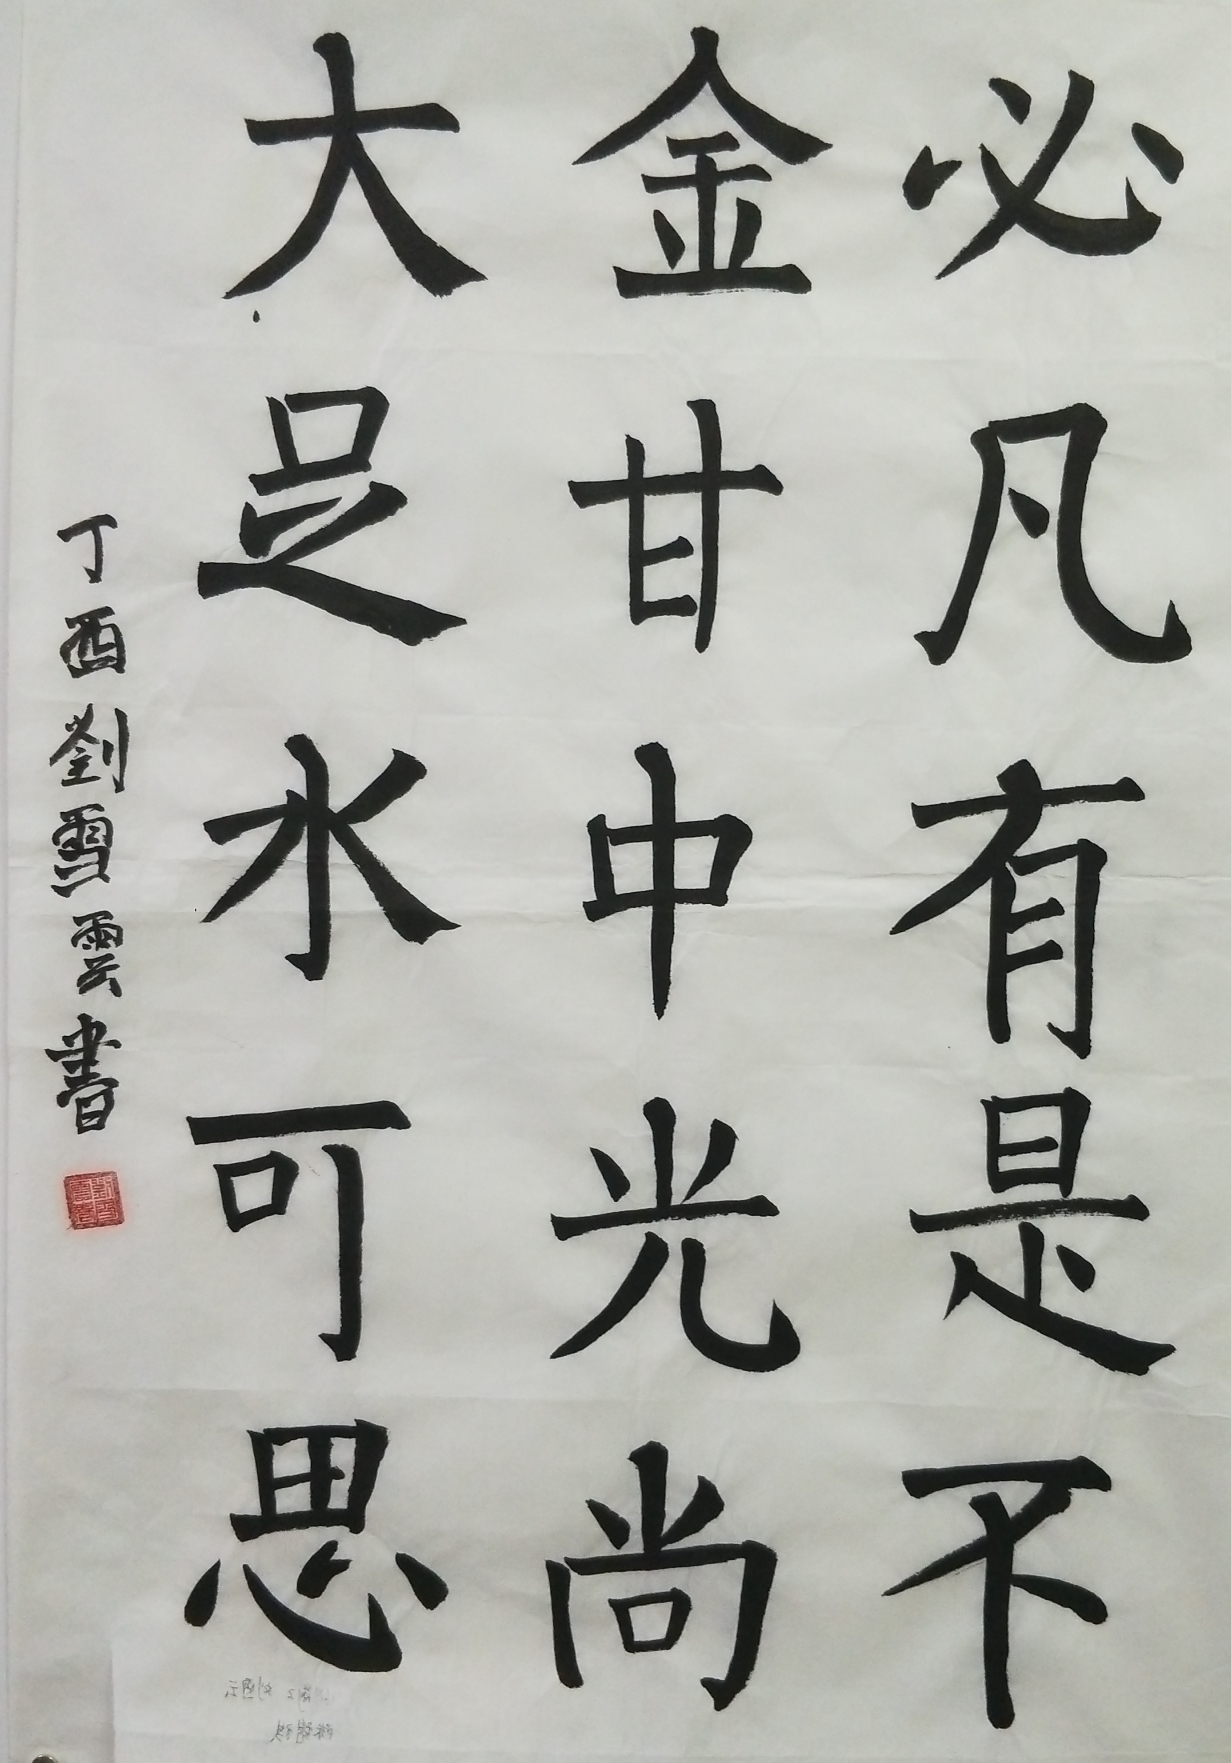 必凡有是不
金甘中光尚
大足水可思
丁酉劉雪雲書